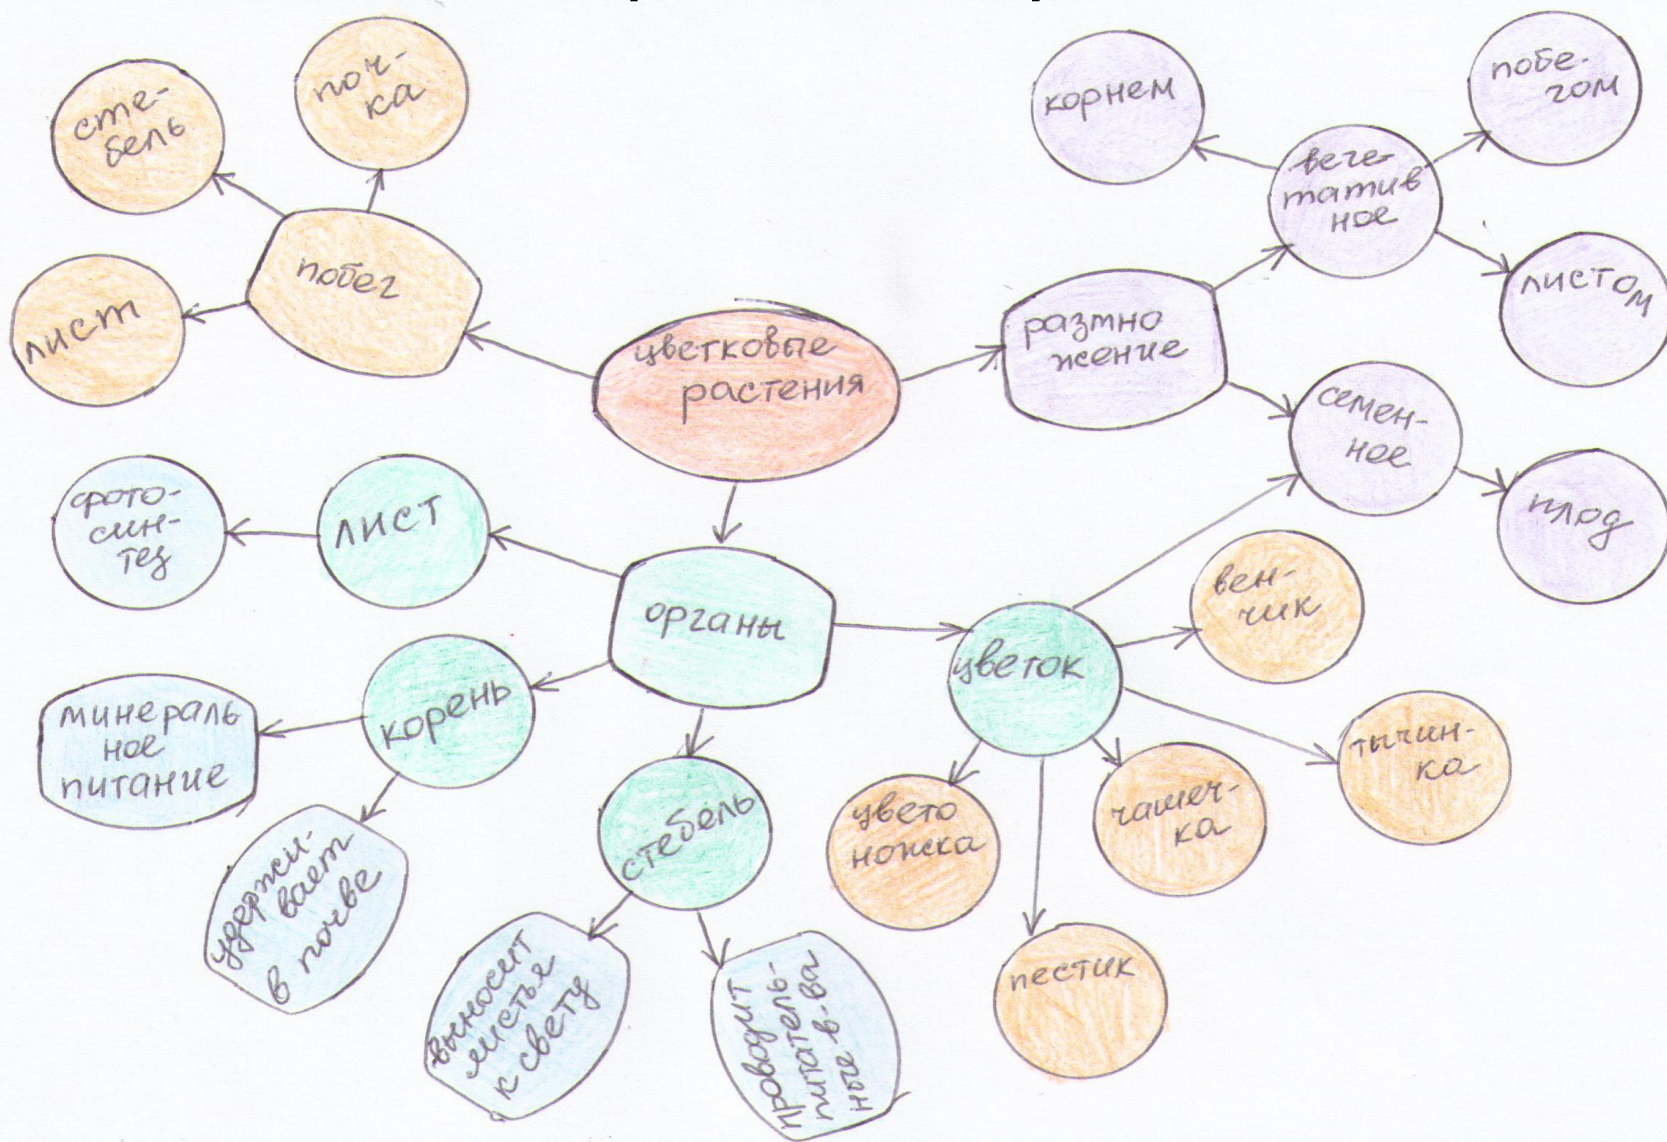 сте-
бель
поч-
ка
лист
побег
цветковые
растения
размно
жение
корнем
веге-
татив
ное
побе-
гом
листом
семен-
ное
плод
фото-
син-
тез
лист
органы
корень
минераль
ное
питание
удержи-
вает
в почве
стебель
выносит
листья
к свету
проводит
питатель-
ные в-ва
цветок
вен-
чик
тычин-
ка
чашеч-
ка
цвето
ножка
пестик